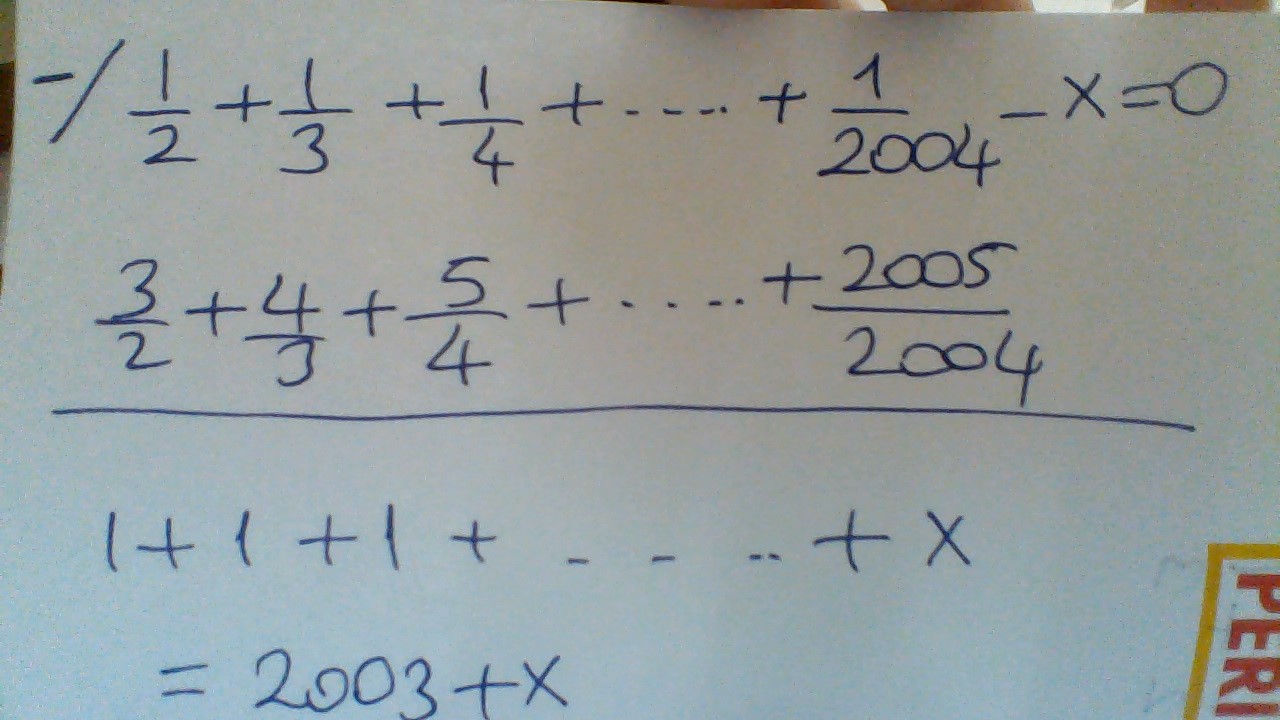 -/ 1/2 + 1/3 + 1/4 + ..... + 1/2004 - x = 0
3/2 + 4/3 + 5/4 + ..... + 2005/2004
1 + 1 + 1 + - - .. + x
= 2003 + x
PERI